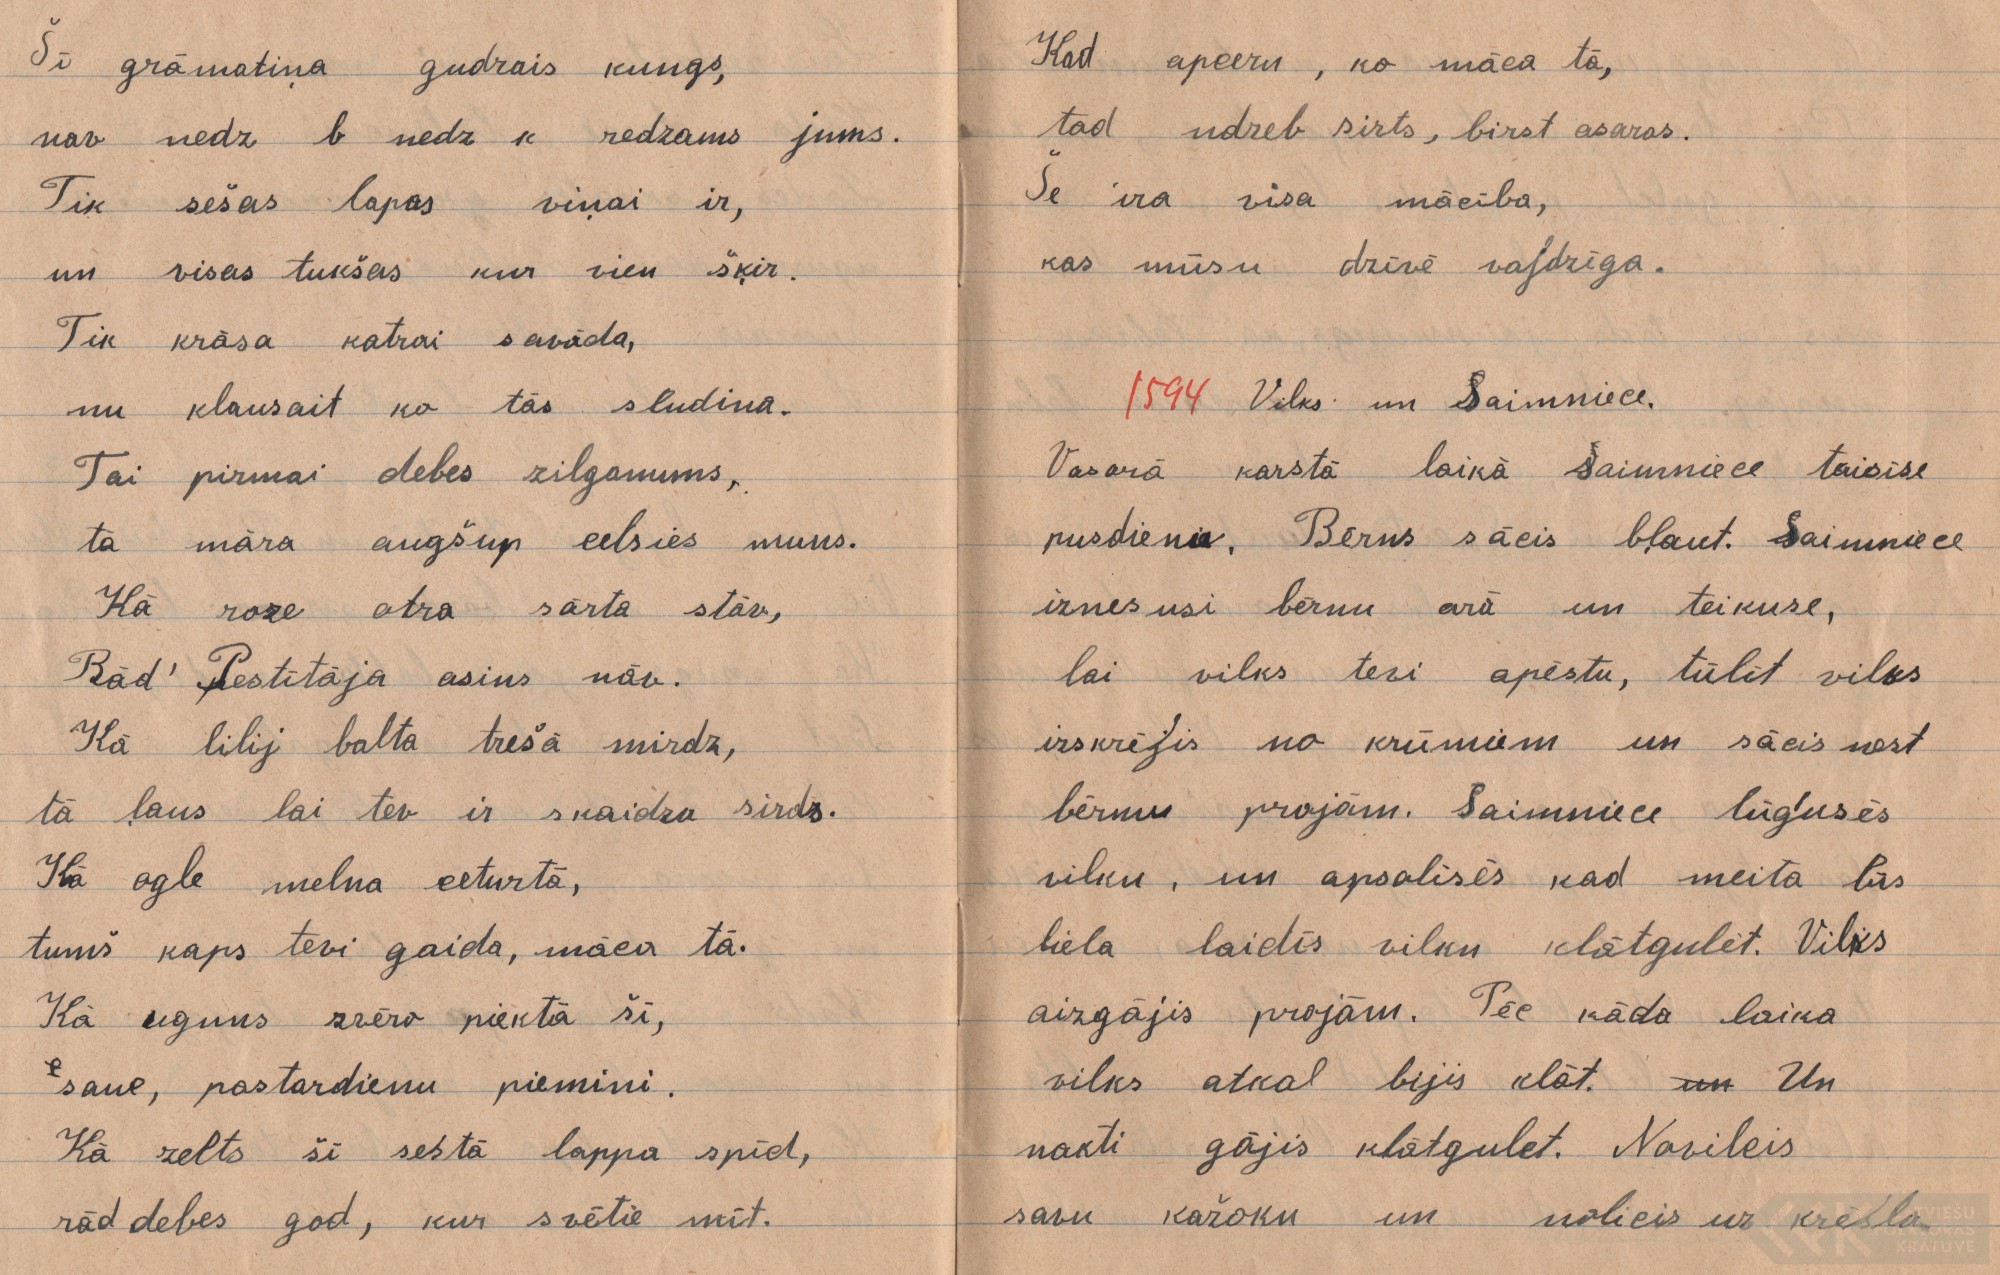 Šī grāmatiņa gudrais kungs,
nav nedz b nedz k redzams jums.
Tik sešas lapas viņai ir,
un visas tukšas kur vien šķir.
Tik krāsa katrai savāda,
nu klausait ko tās sludina.
Tai pirmai debes zilgamums,
tā māra augšup celsies mums.
Kā roze otra sārta stāv,
Rād' Pestītāja asins nāv.
Kā lilij balta trešā mirdz,
tā ļaus lai tev ir skaidra sirds.
Kā ogle melna ceturtā,
tumš kaps tevi gaida, māca tā.
Kā uguns zvēro piektā šī,
esaue, pastardienu piemini.
Kā zelts šī sestā lappa spīd,
rād debes god, kur svētie mīt.
Kad apceru, ko māca tā,
tad udreb sirts, birst asaras.
Še ira visa mācība,
kas mūsu dzīvē vajdzīga.
1594 Vilks un Saimniece.
Vasarā karstā laikā Saimniece taisīse
pusdienu. Bērns sācis bļaut. Saimniece
iznesusi bērnu arā un teikuse,
lai vilks tevi apēstu, tūlīt vilks
izskrējis no krūmiem un sācis nest
bērnu projām. Saimniece lūgusēs
vilku, un apsolisēs kad meita būs
liela laidīs vilku klātgulēt. Vilks
aizgājis projām. Pēc kāda laika
vilks atkal bijis klāt. un Un
nakti gājis klātgulet. Novilcis
savu kažoku un nolicis uz krēsla
LATVIEŠU
FOLKLORAS
KRĀTUVE